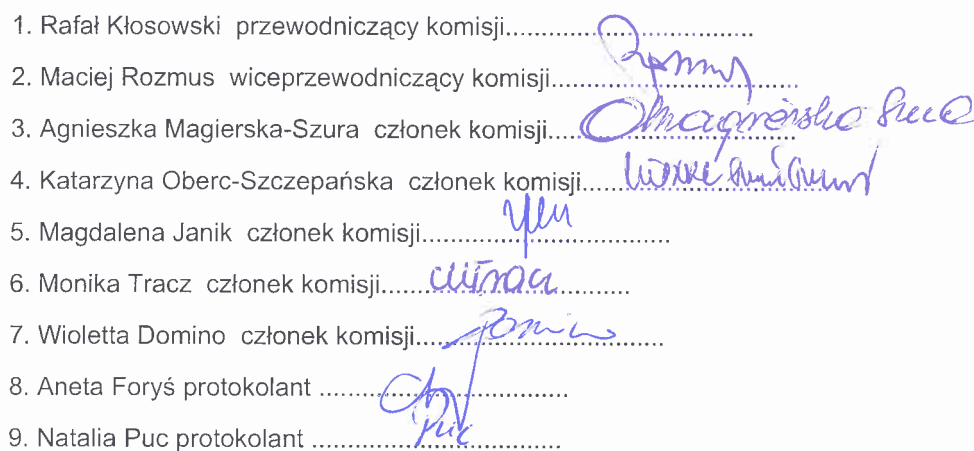 1. Rafał Kłosowski przewodniczący komisji..............................
2. Maciej Rozmus wiceprzewodniczący komisji..............................
3. Agnieszka Magierska-Szura członek komisji..............................
4. Katarzyna Oberc-Szczepańska członek komisji..............................
5. Magdalena Janik członek komisji..............................
6. Monika Tracz członek komisji..............................
7. Wioletta Domino członek komisji.............................. Domino
8. Aneta Foryś protokolant ..............................
9. Natalia Puc protokolant .............................. Puc